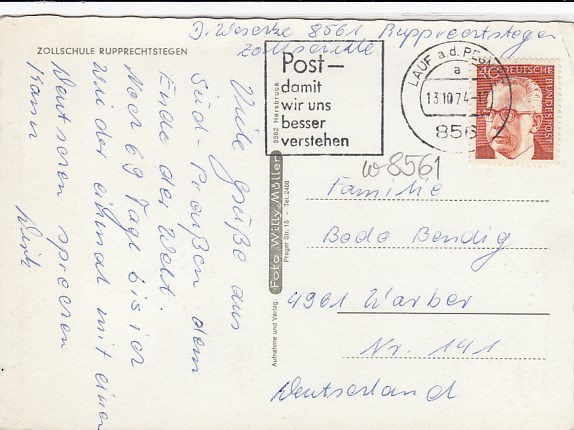 D. Weserke 8561 Rupprechtstegen
Zollschule
ZOLLSCHULE RUPPRECHTSTEGEN
Post –
damit
wir uns
besser
verstehen
LAUF a.d. PEGN.
a
13.10.74
856
40 DEUTSCHE BUNDESPOST
w 8561
Viele Grüße aus
Süd-Preußen dem
Ende der Welt.
Noch 69 Tage bis ich
wieder einmal mit einem
Deutschen sprechen
kann
Dirk
Aufnahme und Verlag: Foto Willy Müller 8562 Hersbruck
Prager Str. 15 • Tel. 2468
Familie
Bodo Bendig
4961 Warber
Nr. 141
Deutschland